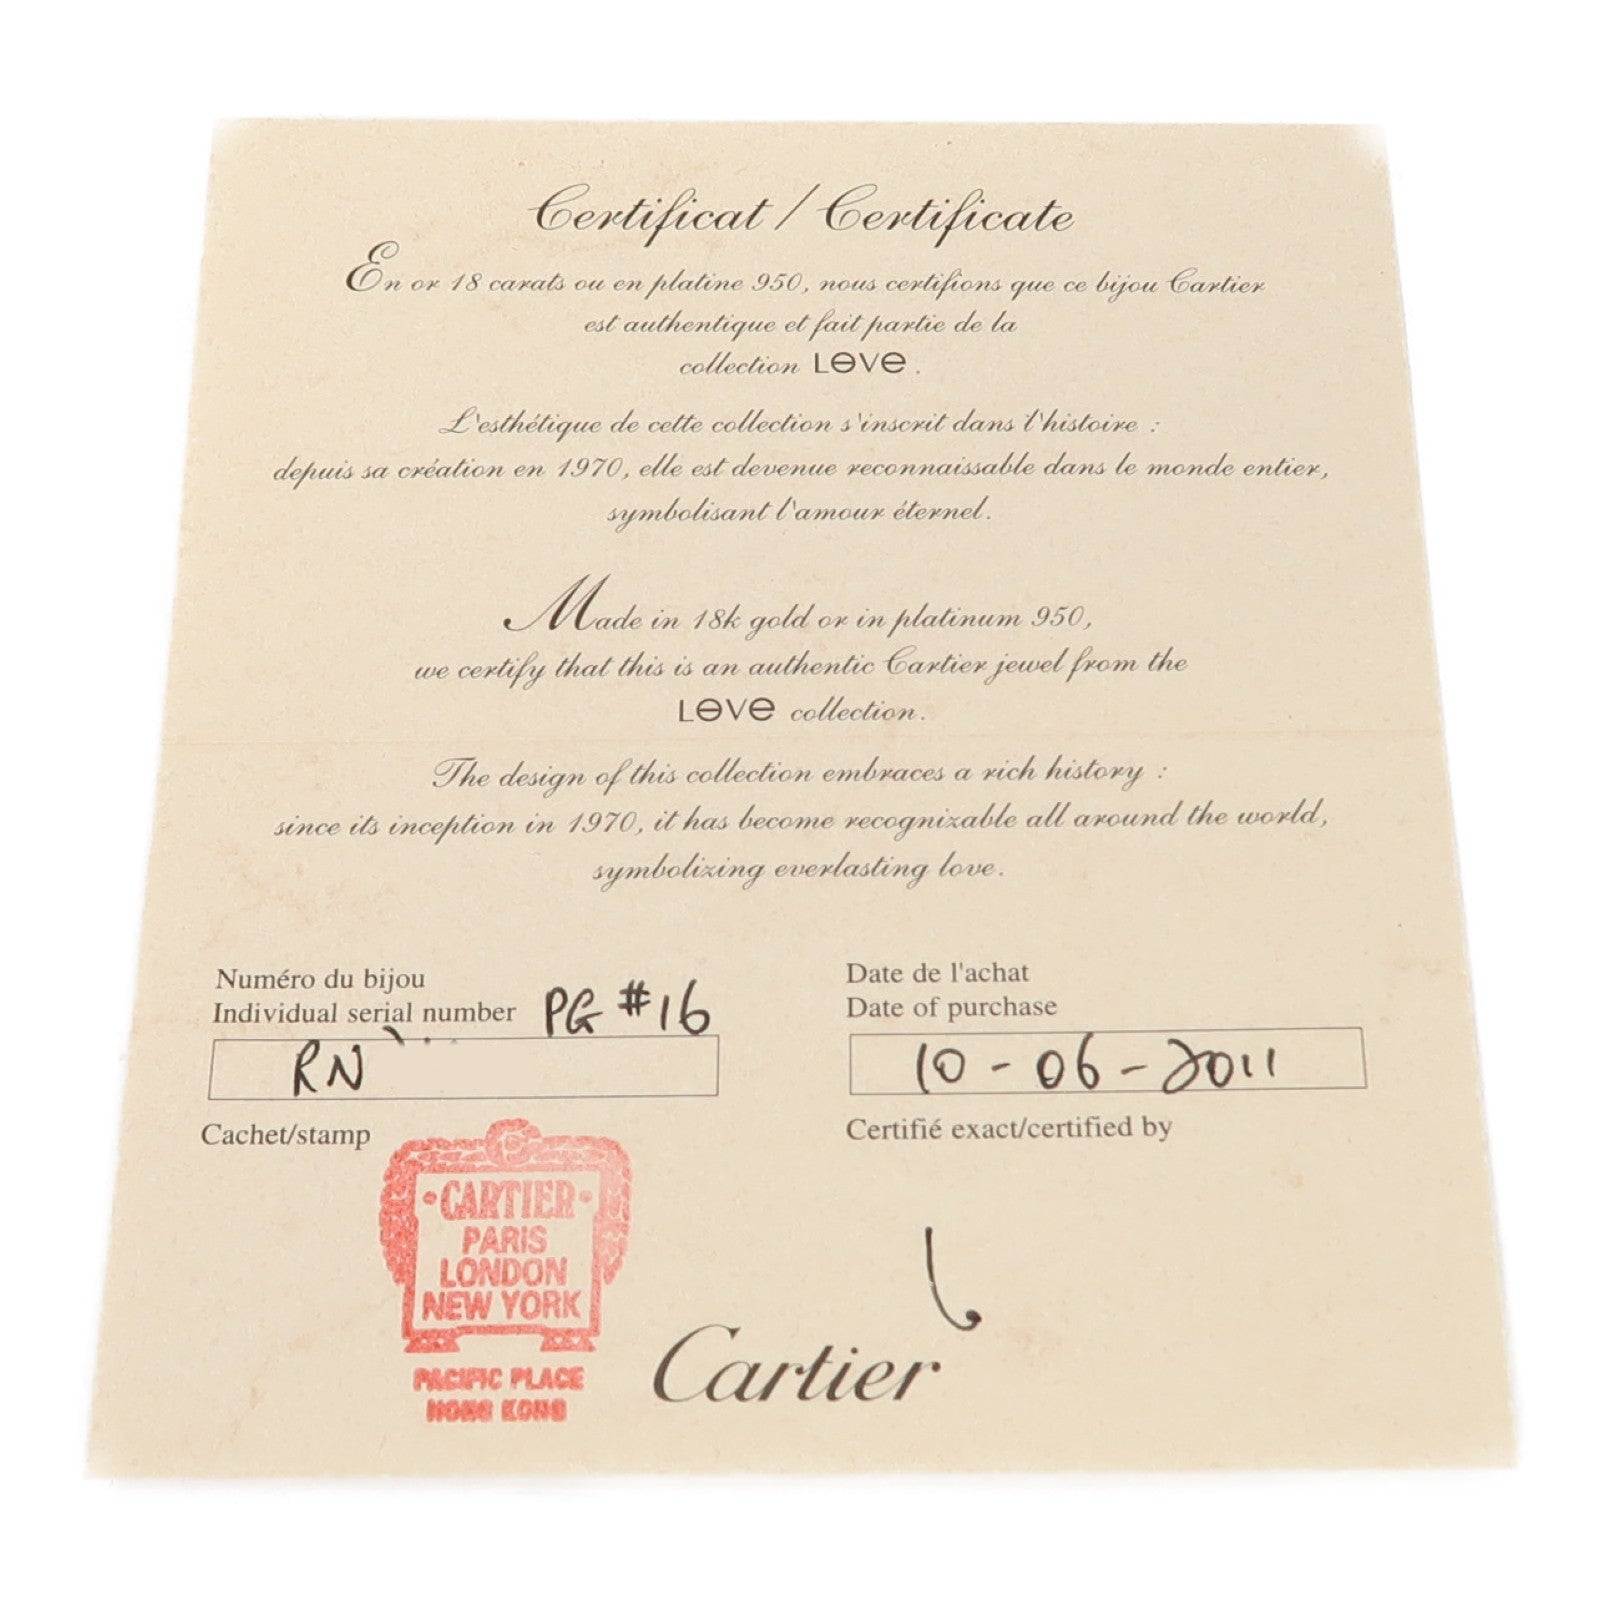 Certificat / Certificate
En or 18 carats ou en platine 950, nous certifions que ce bijou Cartier
est authentique et fait partie de la
collection LOVE.
L'esthétique de cette collection s'inscrit dans l'histoire :
depuis sa création en 1970, elle est devenue reconnaissable dans le monde entier,
symbolisant l'amour éternel.
Made in 18k gold or in platinum 950,
we certify that this is an authentic Cartier jewel from the
LOVE collection.
The design of this collection embraces a rich history :
since its inception in 1970, it has become recognizable all around the world,
symbolizing everlasting love.
Numéro du bijou
Individual serial number PG #16
RN
Date de l'achat
Date of purchase
10-06-2011
Cachet/stamp
Certifié exact/certified by
CARTIER
PARIS
LONDON
NEW YORK
PACIFIC PLACE
HONG KONG
Cartier